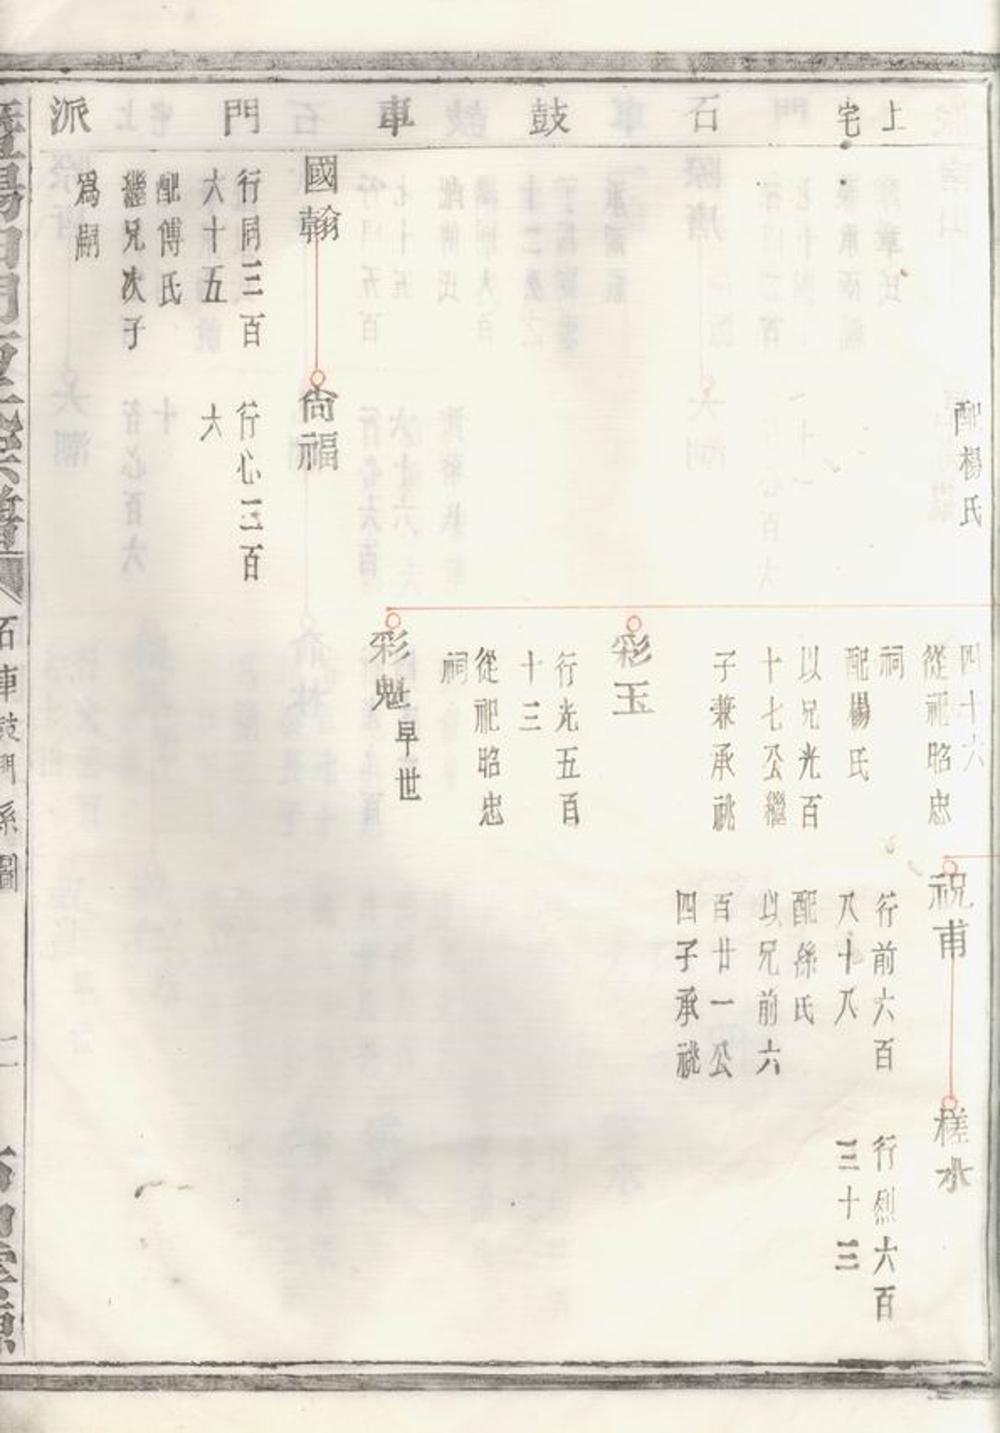 上宅 石 車 鼓 門 派
配楊氏
四十六
從祀昭忠
祠
配楊氏
以兄光百
十七公繼
子兼承祧
祝甫
行前六百
八十八
配孫氏
以兄前六
百廿一公
四子承祧
槎水
行烈六百
三十三
彩玉
行光五百
十三
從祀昭忠
祠
彩魁
早世
國翰
行同三百
六十五
配傅氏
繼兄次子
為嗣
尙福
行心三百
六
石車鼓門系圖